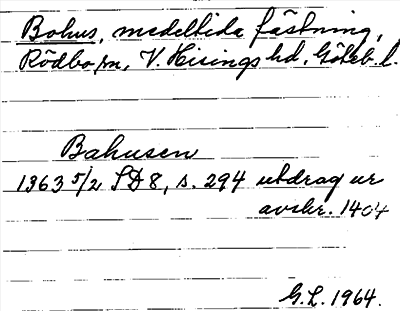 Bohus, medeltida fästning,
Rödbo sn, V. Hisings hd, Göteb. l.
Bahusen
1363 5/2 SD 8, s. 294 utdrag ur
avskr. 1404
G.L. 1964.